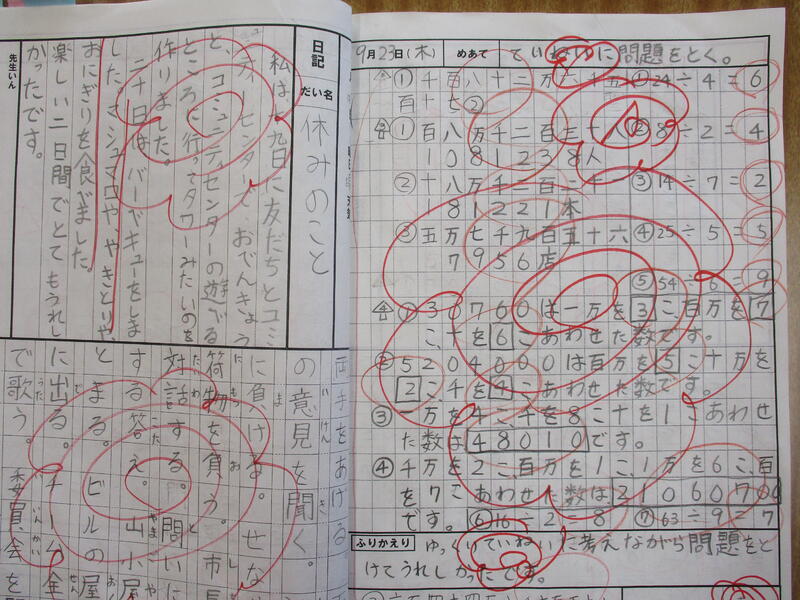 日記
だい名
休みのこと
私は、九日に友だちとコミ
ティーセンターで、おでんきょう
と、コミュニティセンターの遊べる
ところに行ってタワーみたいのを
作りました。
二十日は、バーベキューをしま
した。マシュマロや、やきとりや、
おにぎりを食べました。
楽しい二日間でとてもうれし
かったです。
先生いん
両手をあげる
の意見を聞く。
に負ける。せな
荷物を負う。市長
対話する。問いに
する答え。山小屋
とまる。ビルの屋
に出る。チーム全
で歌う。委員会を
9月23日(木) めあて ていねいに問題をとく。
①千百八十二万六千五 ①24÷4=6
百十七②
①百八万千二百三十八人 ②8÷2=4
1081238人
②十八万千二百二十 ③14÷7=2
181221本
③五万七千九百五十六 ④25÷5=5
7956店
⑤54÷6=9
①30760は一万を3こ、百万を7
こ、十を6こあわせた数です。
②5204000は百万を5こ十万を
2こ、千を4こあわせた数です。
③一万を4こ、千を8こ十を1こあわせ
た数は48010です。
④千万を2こ、百万を1こ、1万を6こ、百
を7こあわせた数は、21060700
です。⑥16÷2=8 ⑦63÷9=7
ふりかえり ゆっくりていねいに考えながら問題をと
けてうれしかったです。